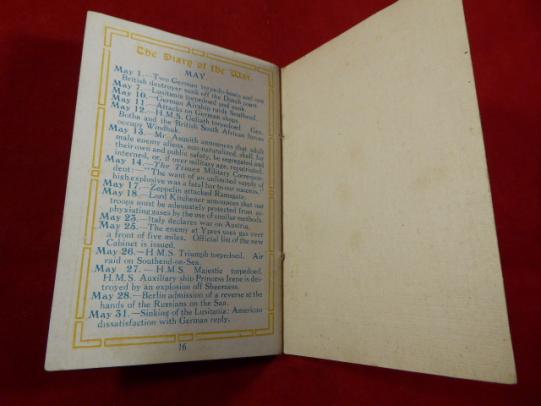 The Diary of the War.
MAY.
May 1.—Two German torpedo-boats and one
British destroyer sunk off the Dutch coast.
May 7.—Lusitania torpedoed and sunk.
May 10.—German Airship raids Southend.
May 11.—Attacks on German shops.
May 12.—H.M.S. Goliath torpedoed. Gen.
Botha and the British South African forces
occupy Windhuk.
May 13.—Mr. Asquith announces that adult
male enemy aliens, non-naturalized, shall, for
their own and public safety, be segregated and
interned, or, if over military age, repatriated.
May 14.—The Times Military Correspon-
dent:—"The want of an unlimited supply of
high explosive was a fatal bar to our success."
May 17.—Zeppelin attacked Ramsgate.
May 18.—Lord Kitchener announces that our
troops must be adequately protected from as-
phyxiating gases by the use of similar methods.
May 23.—Italy declares war on Austria.
May 25.—The enemy at Ypres uses gas over
a front of five miles. Official list of the new
Cabinet is issued.
May 26.—H.M.S Triumph torpedoed. Air
raid on Southend-on-Sea.
May 27.—H.M.S. Majestic torpedoed.
H.M.S. Auxiliary ship Princess Irene is des-
troyed by an explosion off Sheerness.
May 28.—Berlin admission of a reverse at the
hands of the Russians on the San.
May 31.—Sinking of the Lusitania: American
dissatisfaction with German reply.
16